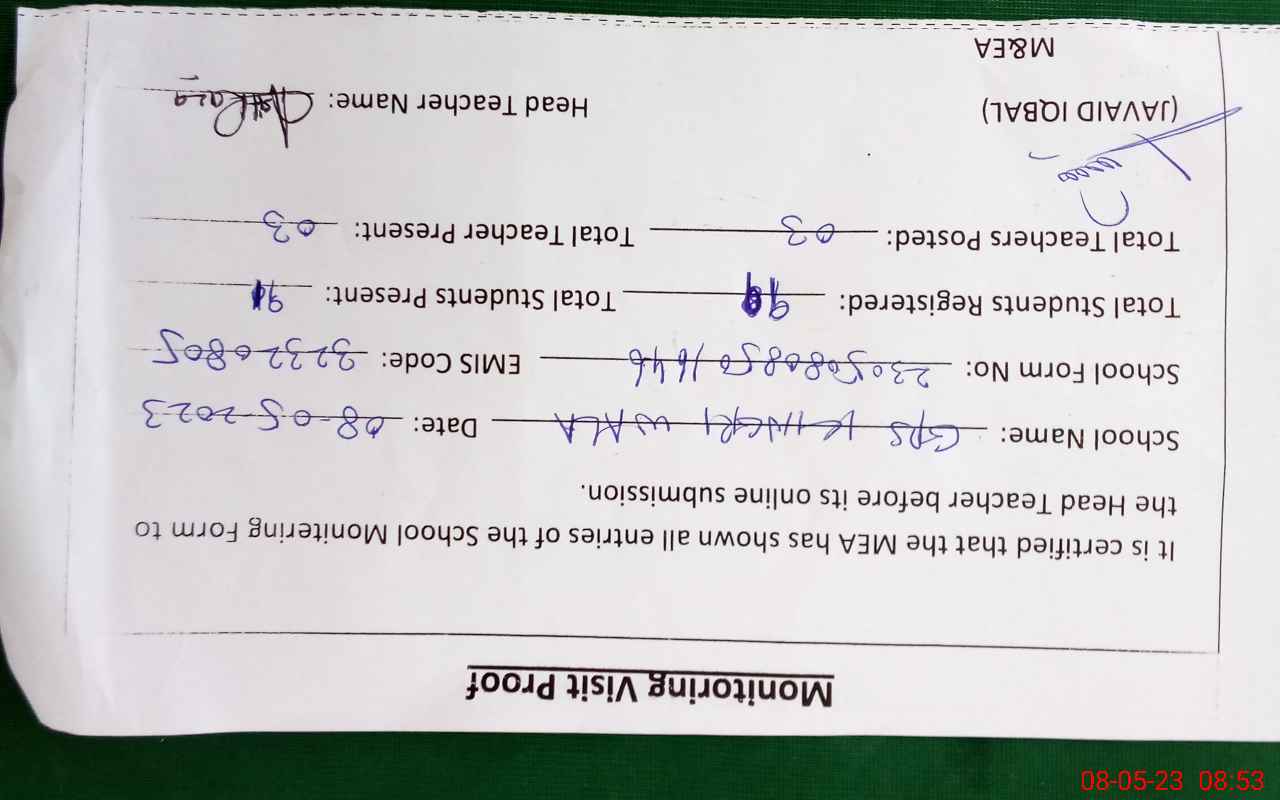 Monitoring Visit Proof
It is certified that the MEA has shown all entries of the School Monitering Form to
the Head Teacher before its online submission.
School Name: GPS KINGRI WALA Date: 08-05-2023
School Form No: 23050808501646 EMIS Code: 32320805
Total Students Registered: Total Students Present: 91
Total Teachers Posted: 03 Total Teacher Present: 03
(JAVAID IQBAL) Head Teacher Name:
M&EA
08-05-23 08:53